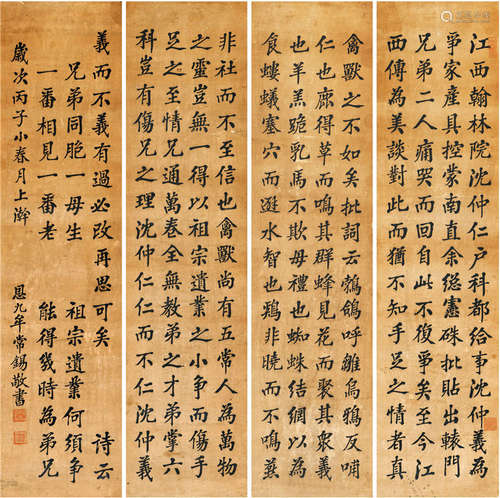 江西翰林院沈仲仁户科都給事沈仲義為
爭家產具控蒙南直余總憲硃批貼出轅門
兄弟二人痛哭而回自此不復爭矣至今江
西傳為美談對此而猶不知手足之情者真
禽獸之不如矣批詞云鵓鴿呼雛烏鴉反哺
仁也鹿得草而鳴其群蜂見花而聚其衆義
也羊羔跪乳馬不欺母禮也蜘蛛結網以為
食螻蟻塞穴而避水智也鷄非曉而不鳴燕
非社而不至信也禽獸尚有五常人為萬物
之靈豈無一得以祖宗遺業之小争而傷手
足之至情兄通萬卷全無教弟之才弟掌六
科豈有傷兄之理沈仲仁仁而不仁沈仲義
義而不義有過必改再思可矣 詩云
兄弟同胞一母生 祖宗遺業何須争
一番相見一番老 能得幾時為弟兄
歲次丙子小春月上澣 恩九牟常錫敬書